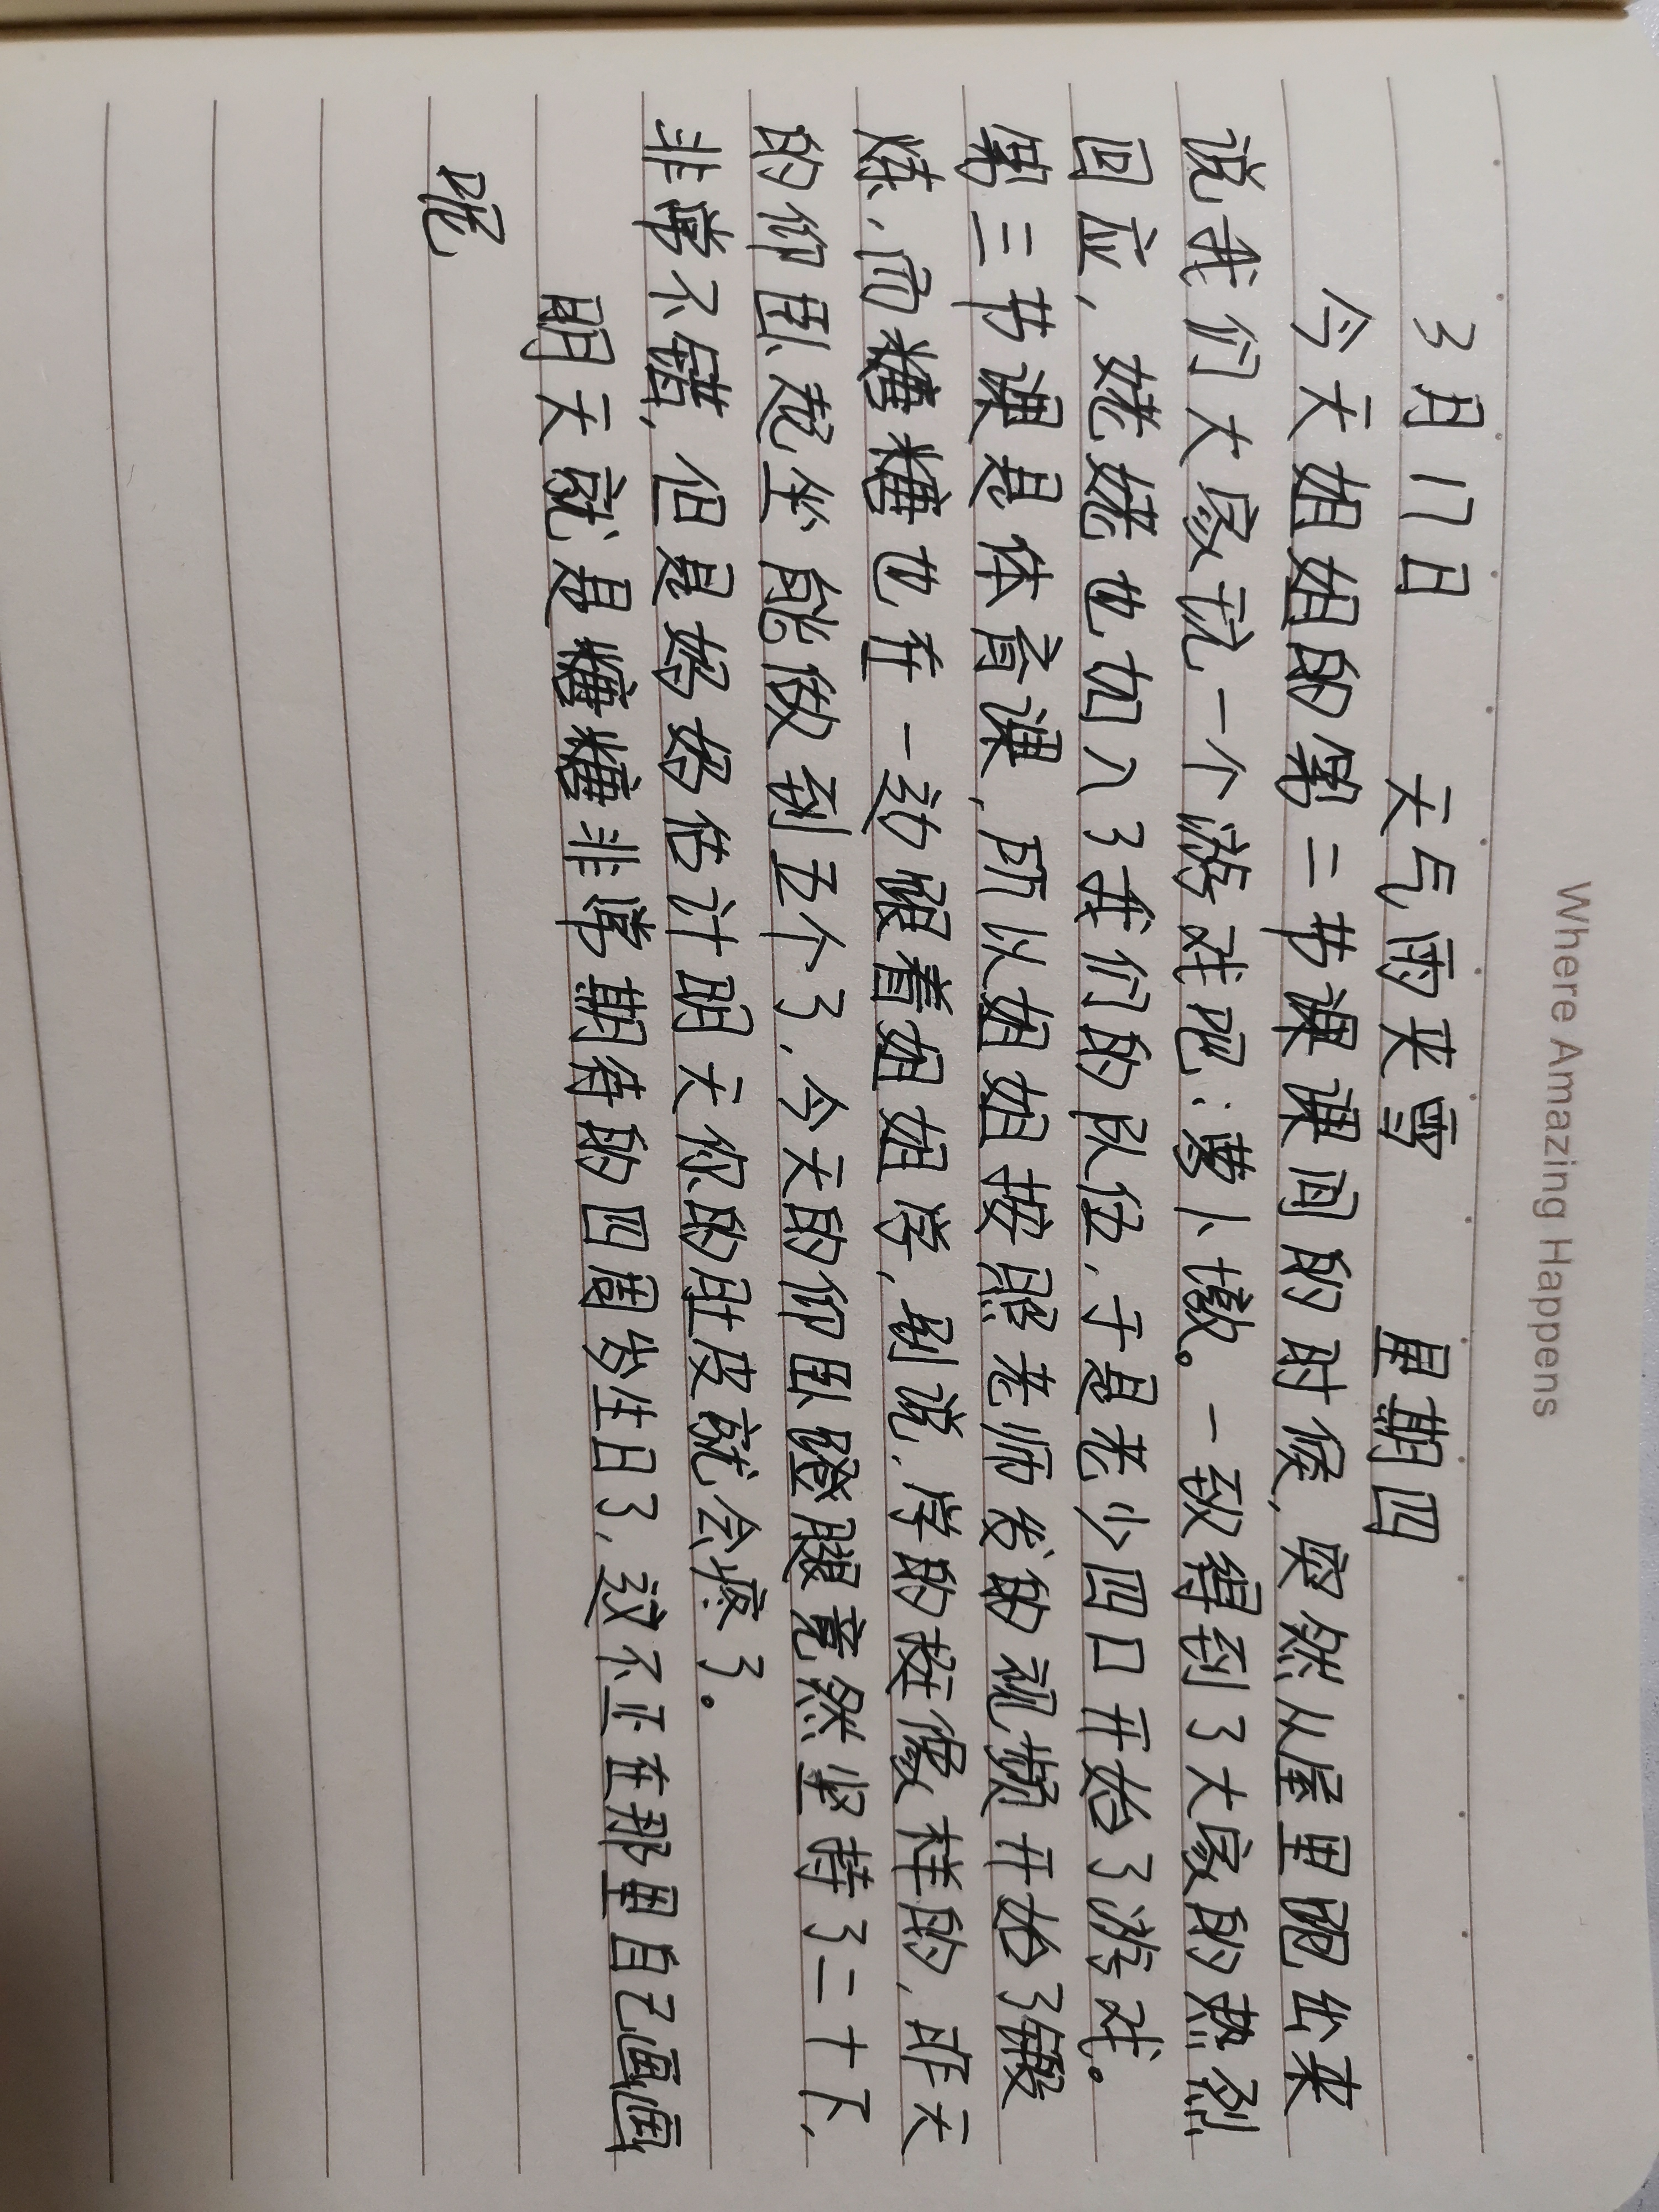 Where Amazing Happens
3月17日 天气雨夹雪 星期四
今天姐姐的第二节课课间的时候,突然从屋里跑出来
说我们大家玩一个游戏吧:萝卜墩。一致得到了大家的热烈
回应,姥姥也加入了我们的队伍,于是老少四口开始了游戏。
第三节课是体育课,所以姐姐按照老师发的视频开始了锻
炼,而糖糖也在一边跟着姐姐学,别说,学的挺像样的,昨天
的仰卧起坐能做到五个了,今天的仰卧蹬腿竟然坚持了二十下,
非常不错,但是妈妈估计明天你的肚皮就会疼了。
明天就是糖糖非常期待的四周岁生日了,这不正在那里自己画画
呢